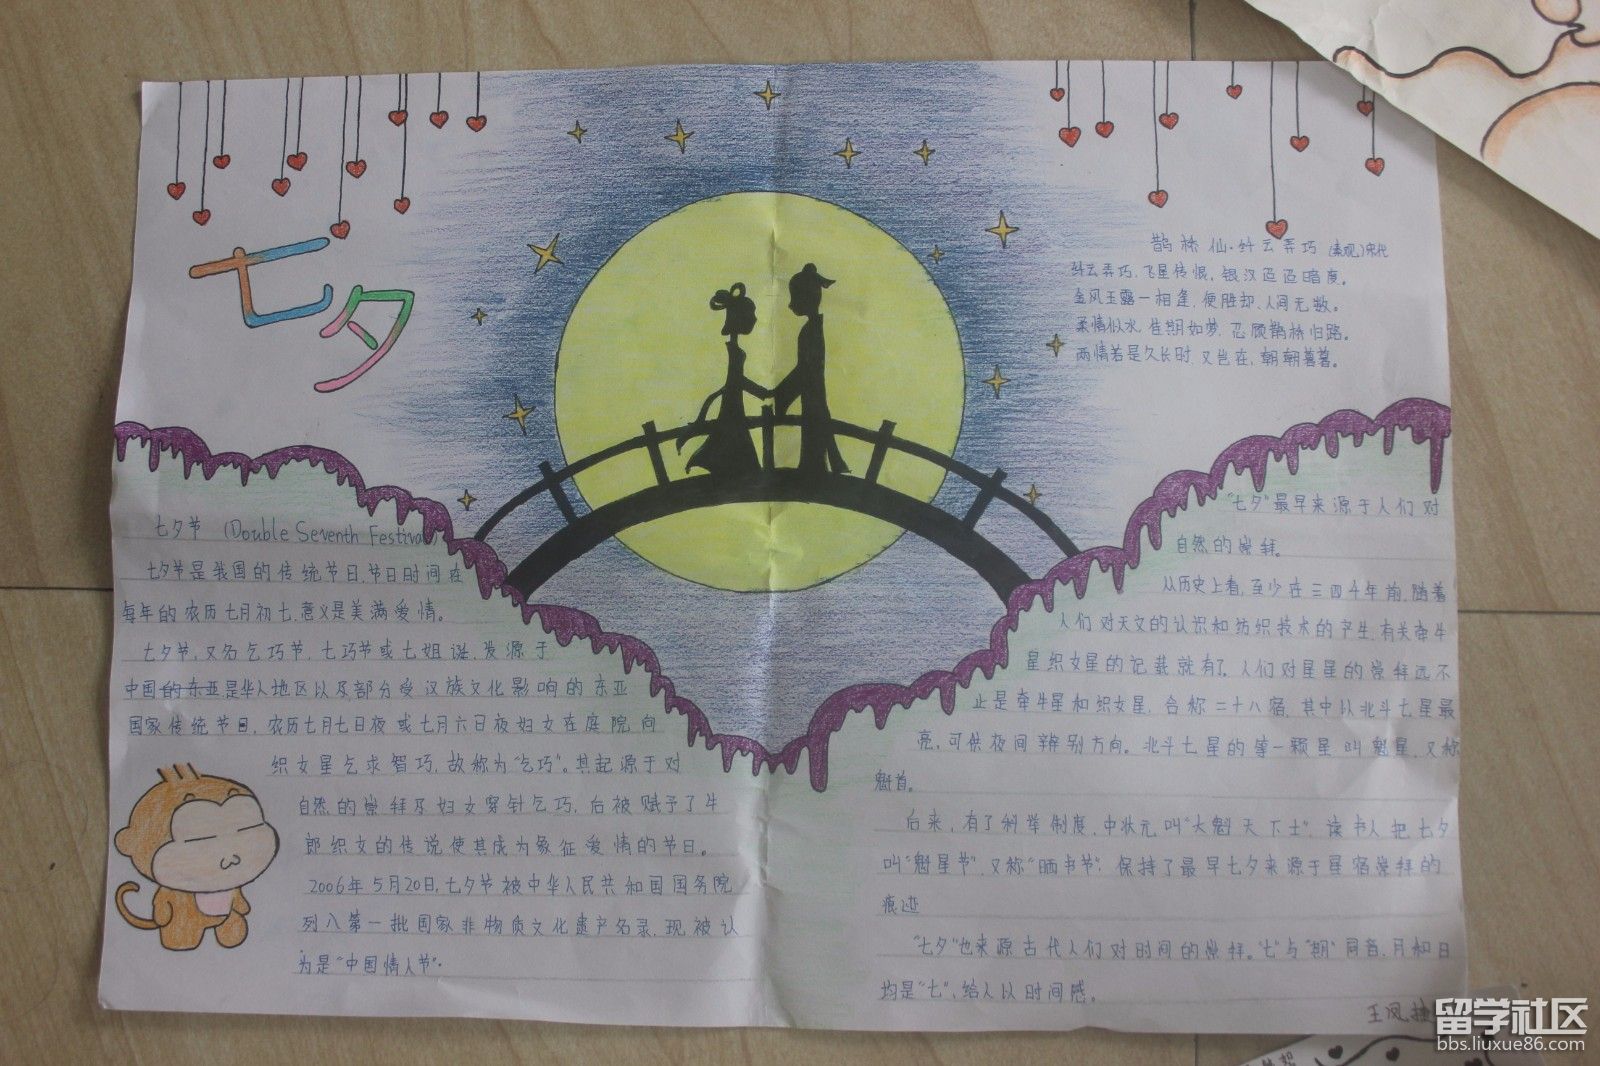 七夕
鹊桥仙·纤云弄巧 宋代
纤云弄巧,飞星传恨,银汉迢迢暗度。
金风玉露一相逢,便胜却,人间无数。
柔情似水,佳期如梦,忍顾鹊桥归路。
两情若是久长时,又岂在,朝朝暮暮。
七夕节 (Double Seventh Festival)
七夕节是我国的传统节日,节日时间在
每年的农历七月初七,意义是美满爱情。
七夕节,又名乞巧节,七巧节或七姐诞,发源于
中国的东亚是华人地区以及部分受汉族文化影响的东亚
国家传统节日,农历七月七日夜或七月六日夜妇女在庭院向
织女星乞求智巧,故称为"乞巧"。其起源于对
自然的崇拜及妇女穿针乞巧,后被赋予了牛
郎织女的传说使其成为象征爱情的节日。
2006年5月20日,七夕节被中华人民共和国国务院
列入第一批国家非物质文化遗产名录,现被认
为是"中国情人节".
"七夕"最早来源于人们对
自然的崇拜。
从历史上看,至少在三四千年前,随着
人们对天文的认识和纺织技术的产生,有关牵牛
星织女星的记载就有了。人们对星星的崇拜远不
止是牵牛星和织女星,合称二十八宿,其中以北斗七星最
亮,可供夜间辨别方向。北斗七星的第一颗星叫魁星,又称
魁首。
后来,有了科举制度,中状元叫"大魁天下士",读书人把七夕
叫"魁星节",又称"晒书节",保持了最早七夕来源于星宿崇拜的
痕迹
"七夕"也来源古代人们对时间的崇拜。"七"与"期"同音,月和日
均是"七",给人以时间感。
王凤
留学社区
bbs.liuxue86.com